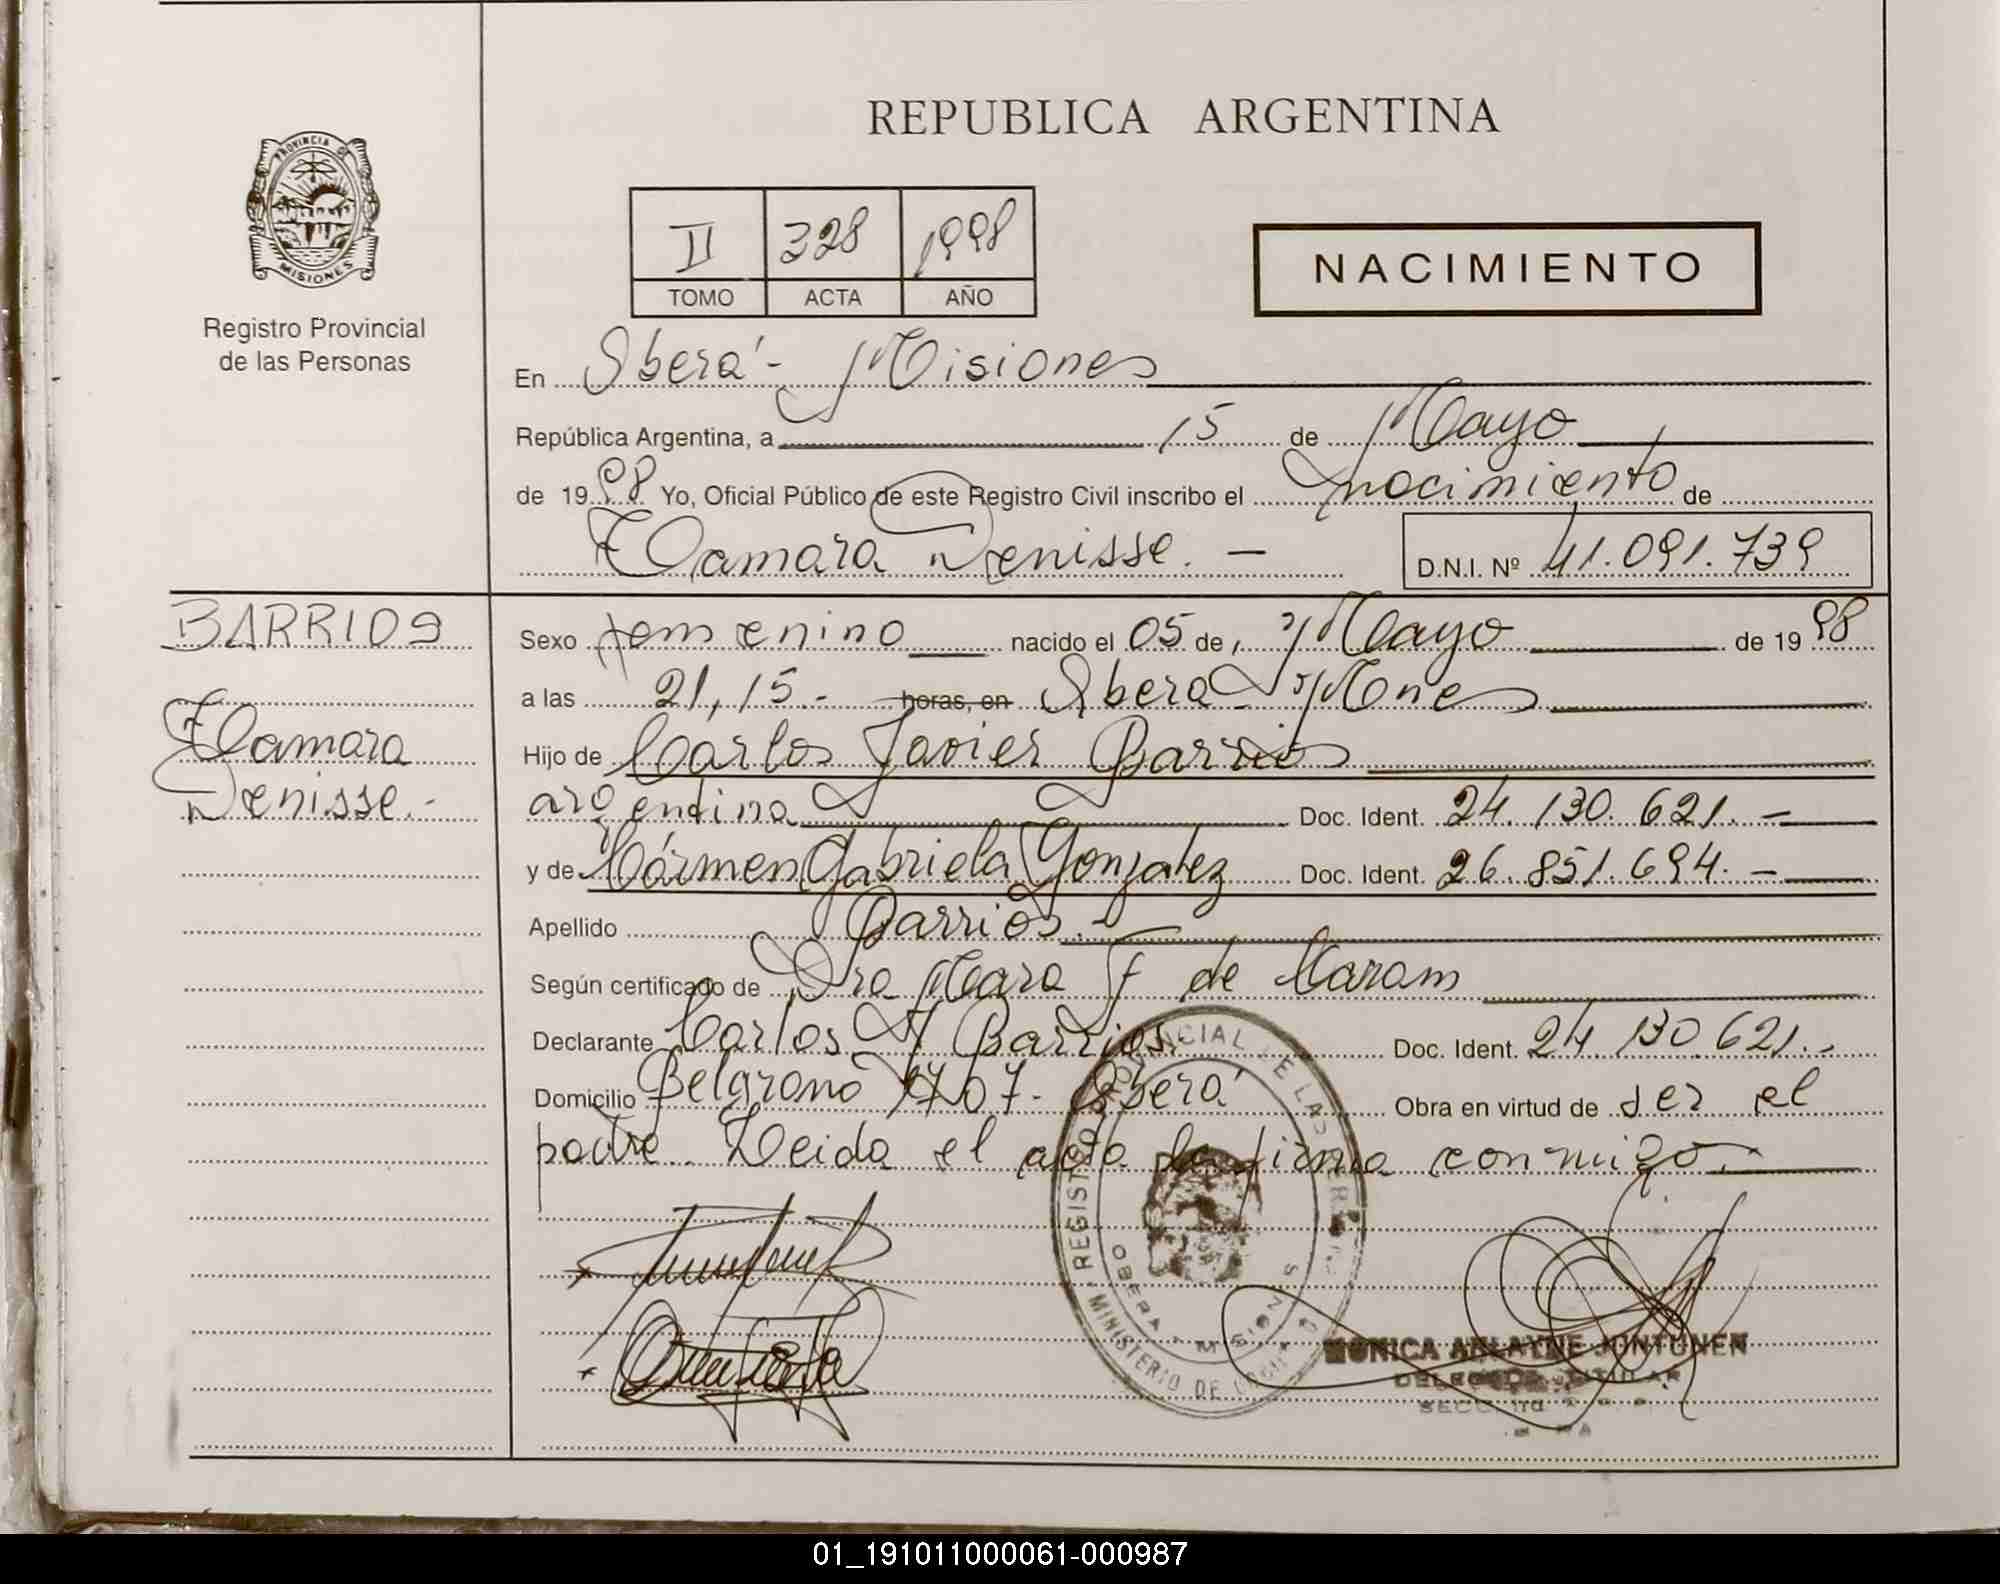 PROVINCIA DE
MISIONES
Registro Provincial
de las Personas
REPUBLICA ARGENTINA
II 328 1998
TOMO ACTA AÑO
NACIMIENTO
En Oberá - Misiones
República Argentina, a 15 de Mayo
de 1998 Yo, Oficial Público de este Registro Civil inscribo el nacimiento de
Tamara Denisse. -
D.N.I. Nº 41.091.739
BARRIOS
Tamara
Denisse. -
Sexo femenino nacido el 05 de Mayo de 1998
a las 21,15.- horas, en Oberá - Mnes
Hijo de Carlos Javier Barrios
argentina Doc. Ident. 24.130.621. -
y de Cármen Gabriela Gonzalez Doc. Ident. 26.851.694. -
Apellido Barrios. -
Según certificado de Dra Mara F de Caram
Declarante Carlos J Barrios. Doc. Ident. 24.130.621. -
Domicilio Belgrano 1707 - Oberá Obra en virtud de ser el
padre. Leida el acta la firma conmigo. -
REGISTRO PROVINCIAL DE LAS PERSONAS
OBERA - MISIONES
MINISTERIO DE
MONICA JUNTUNEN
DELEGADA TITULAR
01_191011000061-000987